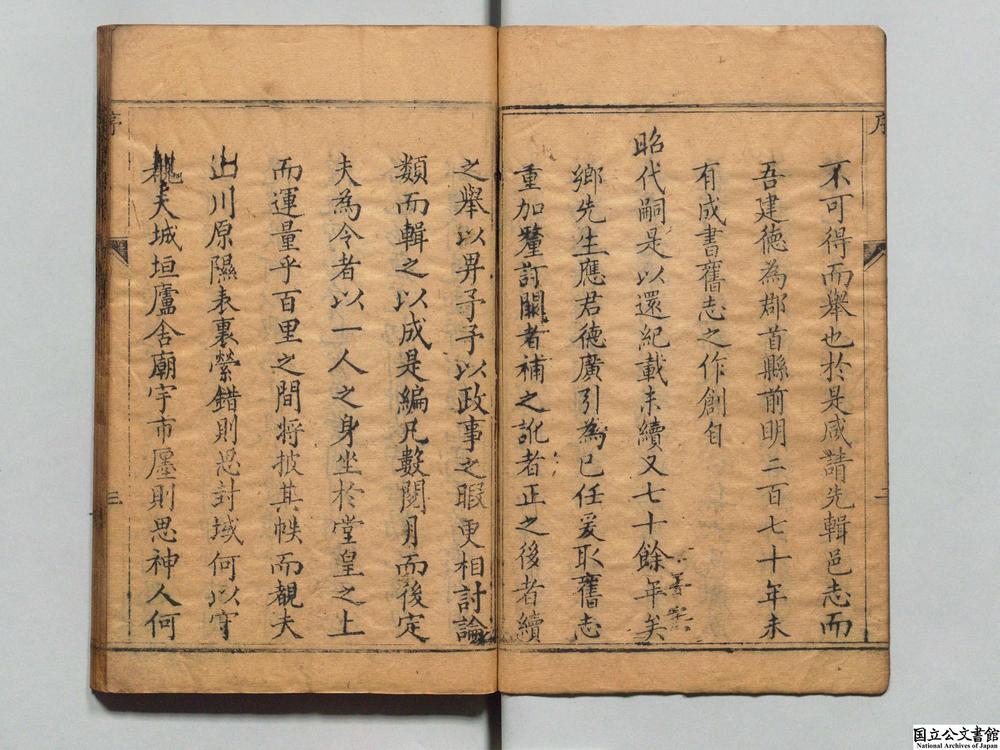 序
二
不可得而舉也於是咸請先輯邑志而
吾建德為郡首縣前明二百七十年未
有成書舊志之作創自
昭代嗣是以還紀載未續又七十餘年矣
鄉先生應君德廣引為己任爰取舊志
重加釐訂闕者補之訛者正之後者續
之舉以畀予予以政事之暇更相討論
類而輯之以成是編凡數閱月而後定
夫為令者以一人之身坐於堂皇之上
而運量乎百里之間將披其帙而覩夫
山川原隰表裏縈錯則思封域何以守
夫城垣廬舍廟宇市廛則思神人何
序
三
国立公文書館
National Archives of Japan